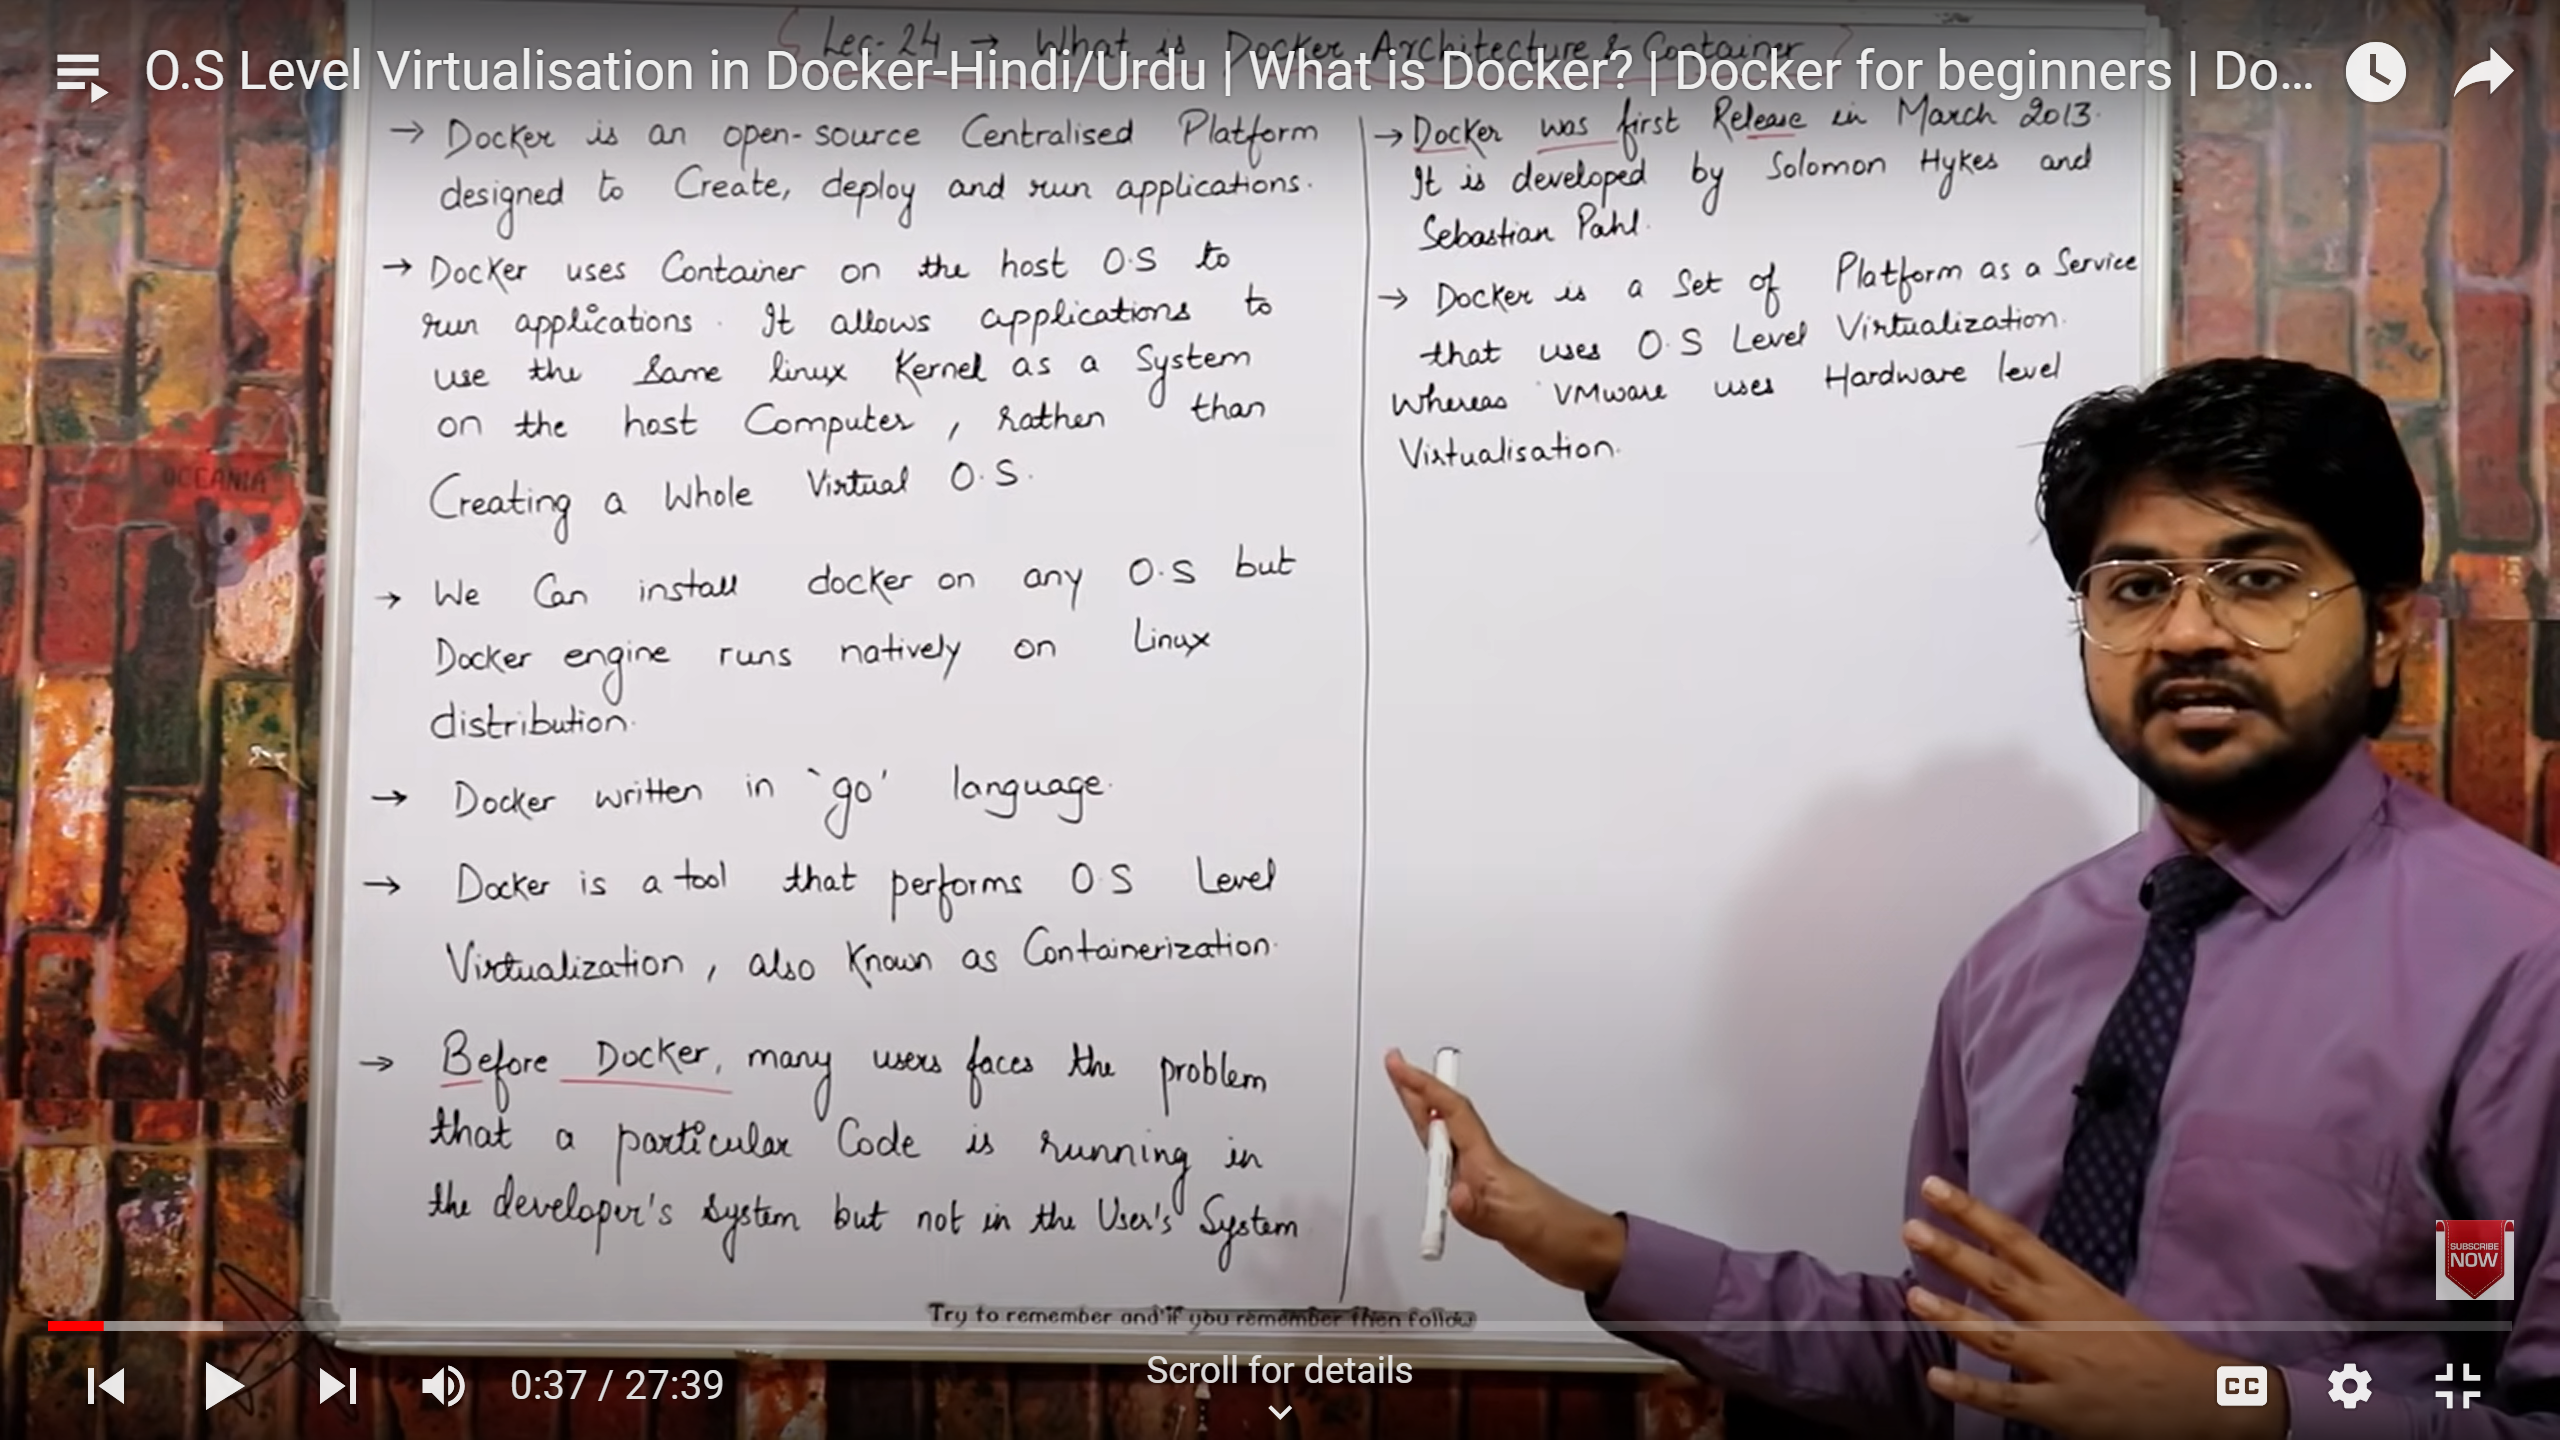 { Lec-24 → What is Docker Architecture & Container }
O.S Level Virtualisation in Docker-Hindi/Urdu | What is Docker? | Docker for beginners | Do...
→ Docker is an open-source Centralised Platform
designed to Create, deploy and run applications.
→ Docker uses Container on the host O.S to
run applications. It allows applications to
use the same linux Kernel as a System
on the host Computer, rather than
Creating a Whole Virtual O.S.
→ We Can install docker on any O.S but
Docker engine runs natively on Linux
distribution.
→ Docker written in `go' language.
→ Docker is a tool that performs O.S Level
Virtualization, also Known as Containerization.
→ Before Docker, many users faces the problem
that a particular Code is running in
the developer's system but not in the User's System
→ Docker was first Release in March 2013.
It is developed by Solomon Hykes and
Sebastian Pahl.
→ Docker is a Set of Platform as a Service
that uses O.S Level Virtualization.
Whereas VMware uses Hardware level
Virtualisation.
OCEANIA
SUBSCRIBE
NOW
Try to remember and if you remember then follow
0:37 / 27:39
Scroll for details
CC